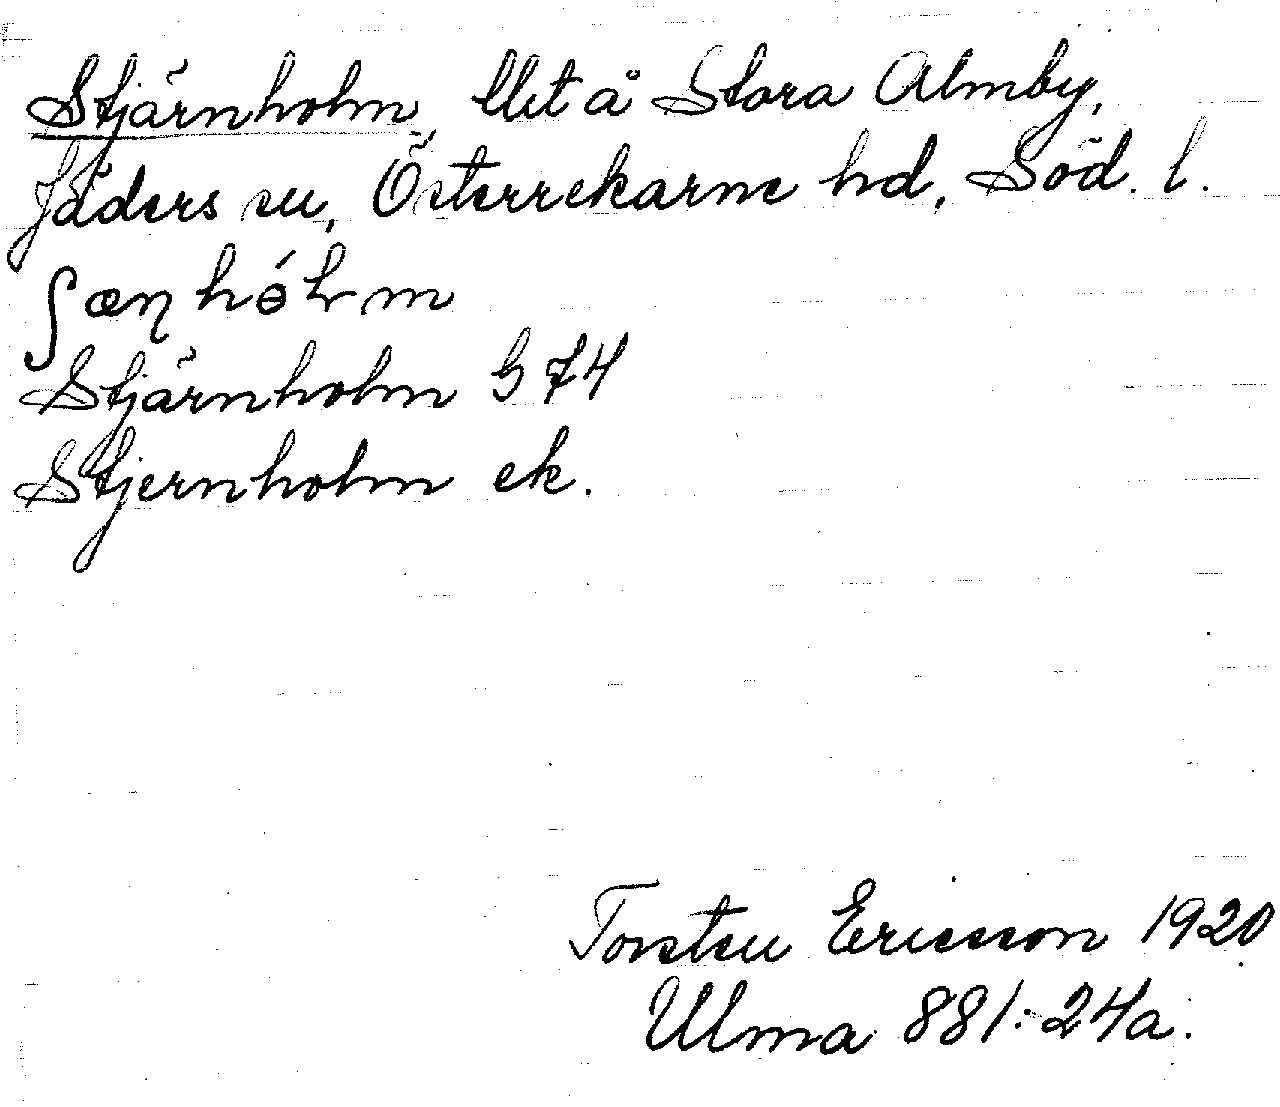 Stjärnholm, llit å Stora Almby,
Jäders sn, Österrekarne hd, Söd. l.
ʃæɳhólm
Stjärnholm G 74
Stjernholm ek.
Torsten Ericsson 1920
Ulma 881:24a.